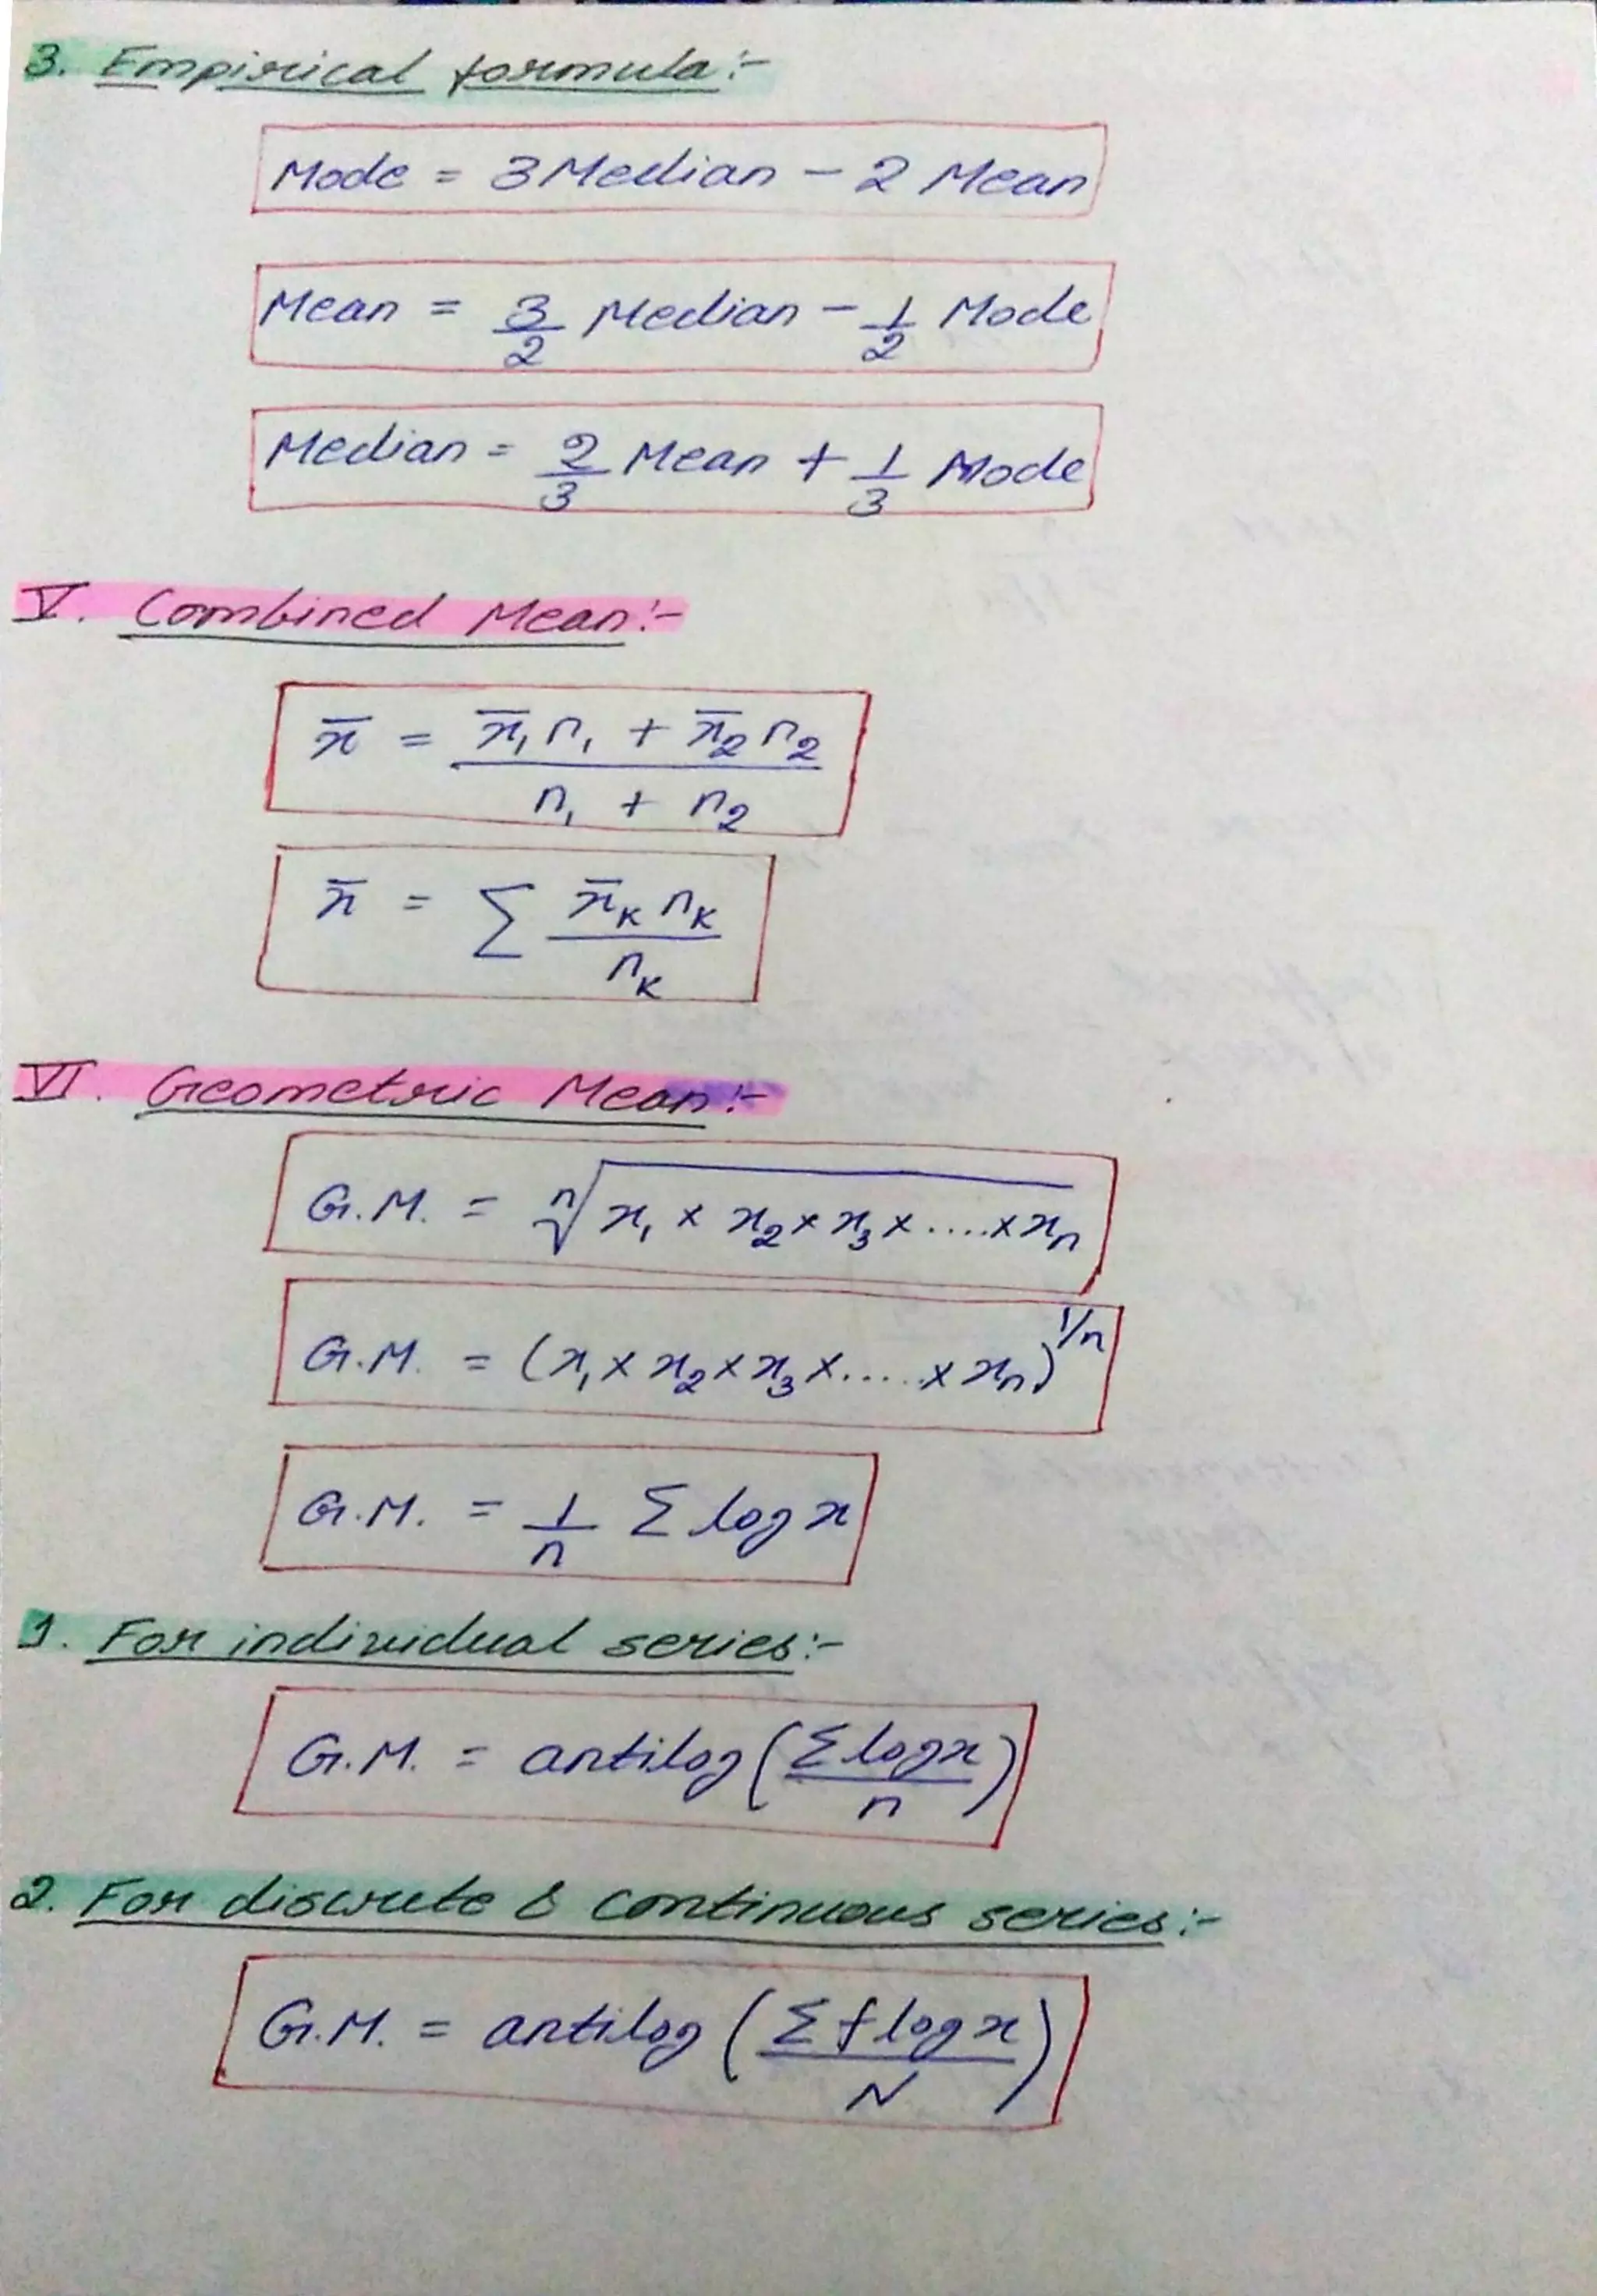 3. Empirical formula:-
Mode = 3 Median - 2 Mean
Mean = 3/2 Median - 1/2 Mode
Median = 2/3 Mean + 1/3 Mode
V. Combined Mean:-
x̄ = (x̄₁n₁ + x̄₂n₂)/(n₁ + n₂)
x̄ = Σ x̄ₖnₖ/nₖ
VI. Geometric Mean:-
G.M. = ⁿ√(x₁ × x₂ × x₃ × .... × xₙ)
G.M. = (x₁ × x₂ × x₃ × ..... × xₙ)^1/n
G.M. = 1/n Σ log x
1. For individual series:-
G.M. = antilog (Σ log x/n)
2. For discrete & continuous series:-
G.M. = antilog (Σ f log x/N)